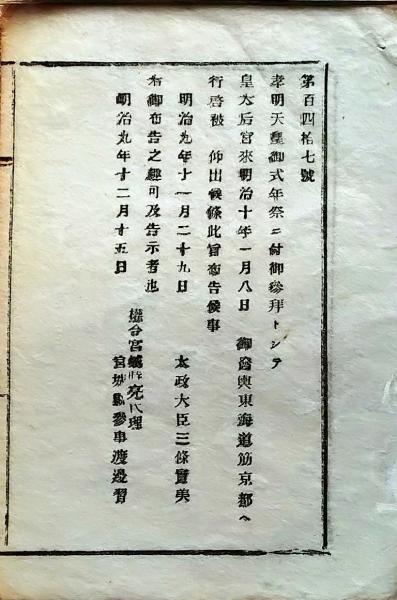 第百四拾七號
孝明天皇御式年祭ニ付御參拜トシテ
皇太后宮來明治十年一月八日 御發輿東海道筋京都ヘ
行啓被 仰出候條此旨布告候事
明治九年十一月二十九日 太政大臣三條實美
右御布告之趣可及告示者也
明治九年十二月十五日
權令宮城時亮代理
宮城縣參事渡邊習